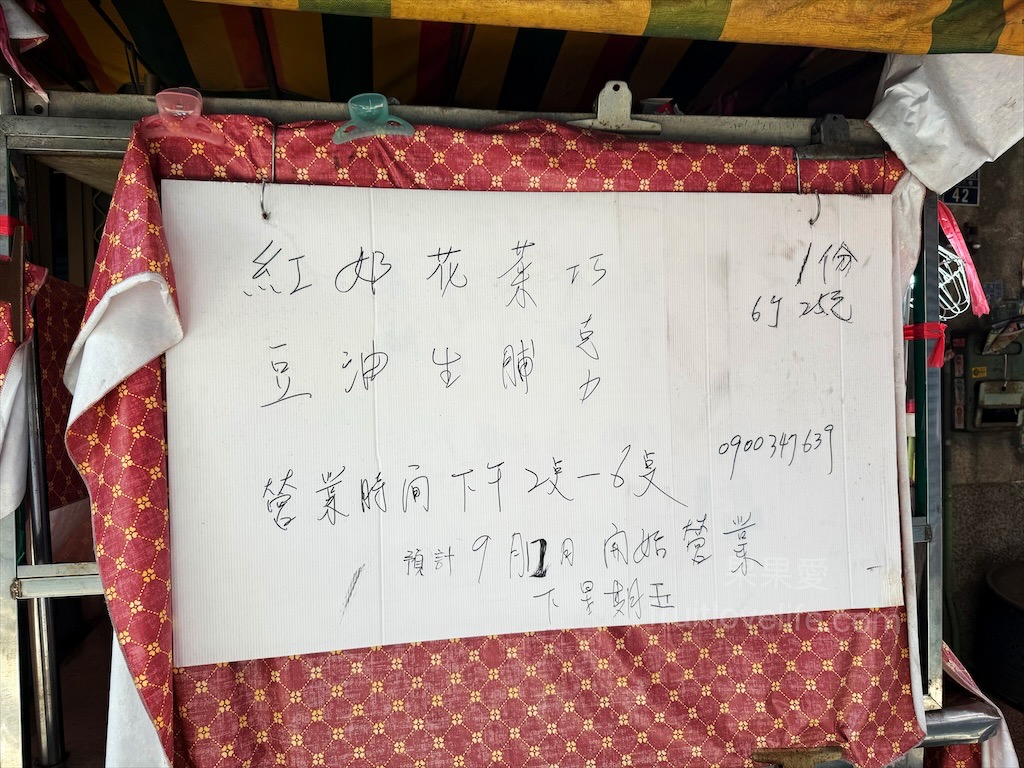 紅 奶 花 菜 巧
豆 油 生 脯 克
力
1份
6個 25元
0900347639
營業時间下午2桌一6桌
預計 9月 2日 開始營業
下星期五
果果愛
fruitlovelife.com
42